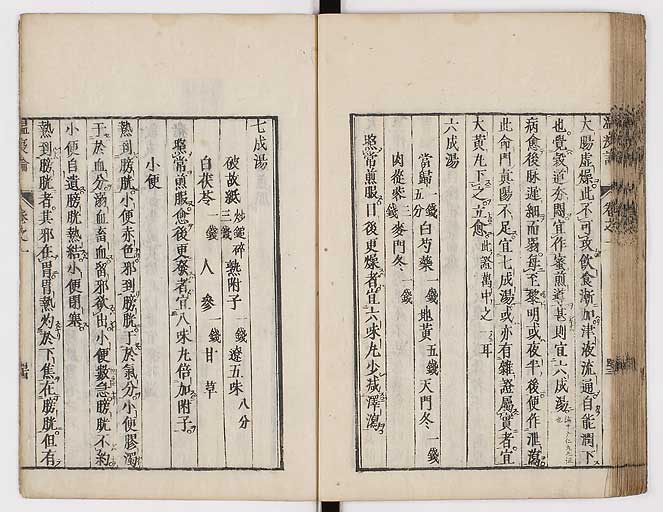 大腸虛燥此不可攻飲食漸加津液流通自能潤下
也覺穀道夯悶宜作蜜煎導甚則宜六成湯
病愈後脉遲細而弱每至黎明或夜半後便作泄瀉
此命門真陽不足宜七成湯或亦有雜證屬實者宜
大黃丸下之立愈此證萬中之一耳
六成湯
當歸一錢五分 白芍藥一錢 地黃五錢 天門冬一錢
肉蓯蓉三錢 麥門冬一錢
照常煎服日後更燥者宜六味丸少減澤瀉
七成湯
破故紙炒鎚碎三錢 熟附子一錢 遼五味八分
白茯苓一錢 人參一錢 甘草
照常煎服愈後更發者宜八味丸倍加附子
小便
熱到膀胱小便赤色邪到膀胱于於氣分小便膠濁
于於血分溺血畜血留邪欲出小便數急膀胱不約
小便自遺膀胱熱結小便閉塞
熱到膀胱者其邪在胃胃熱灼於下焦在膀胱但有
溫疫論 卷之一